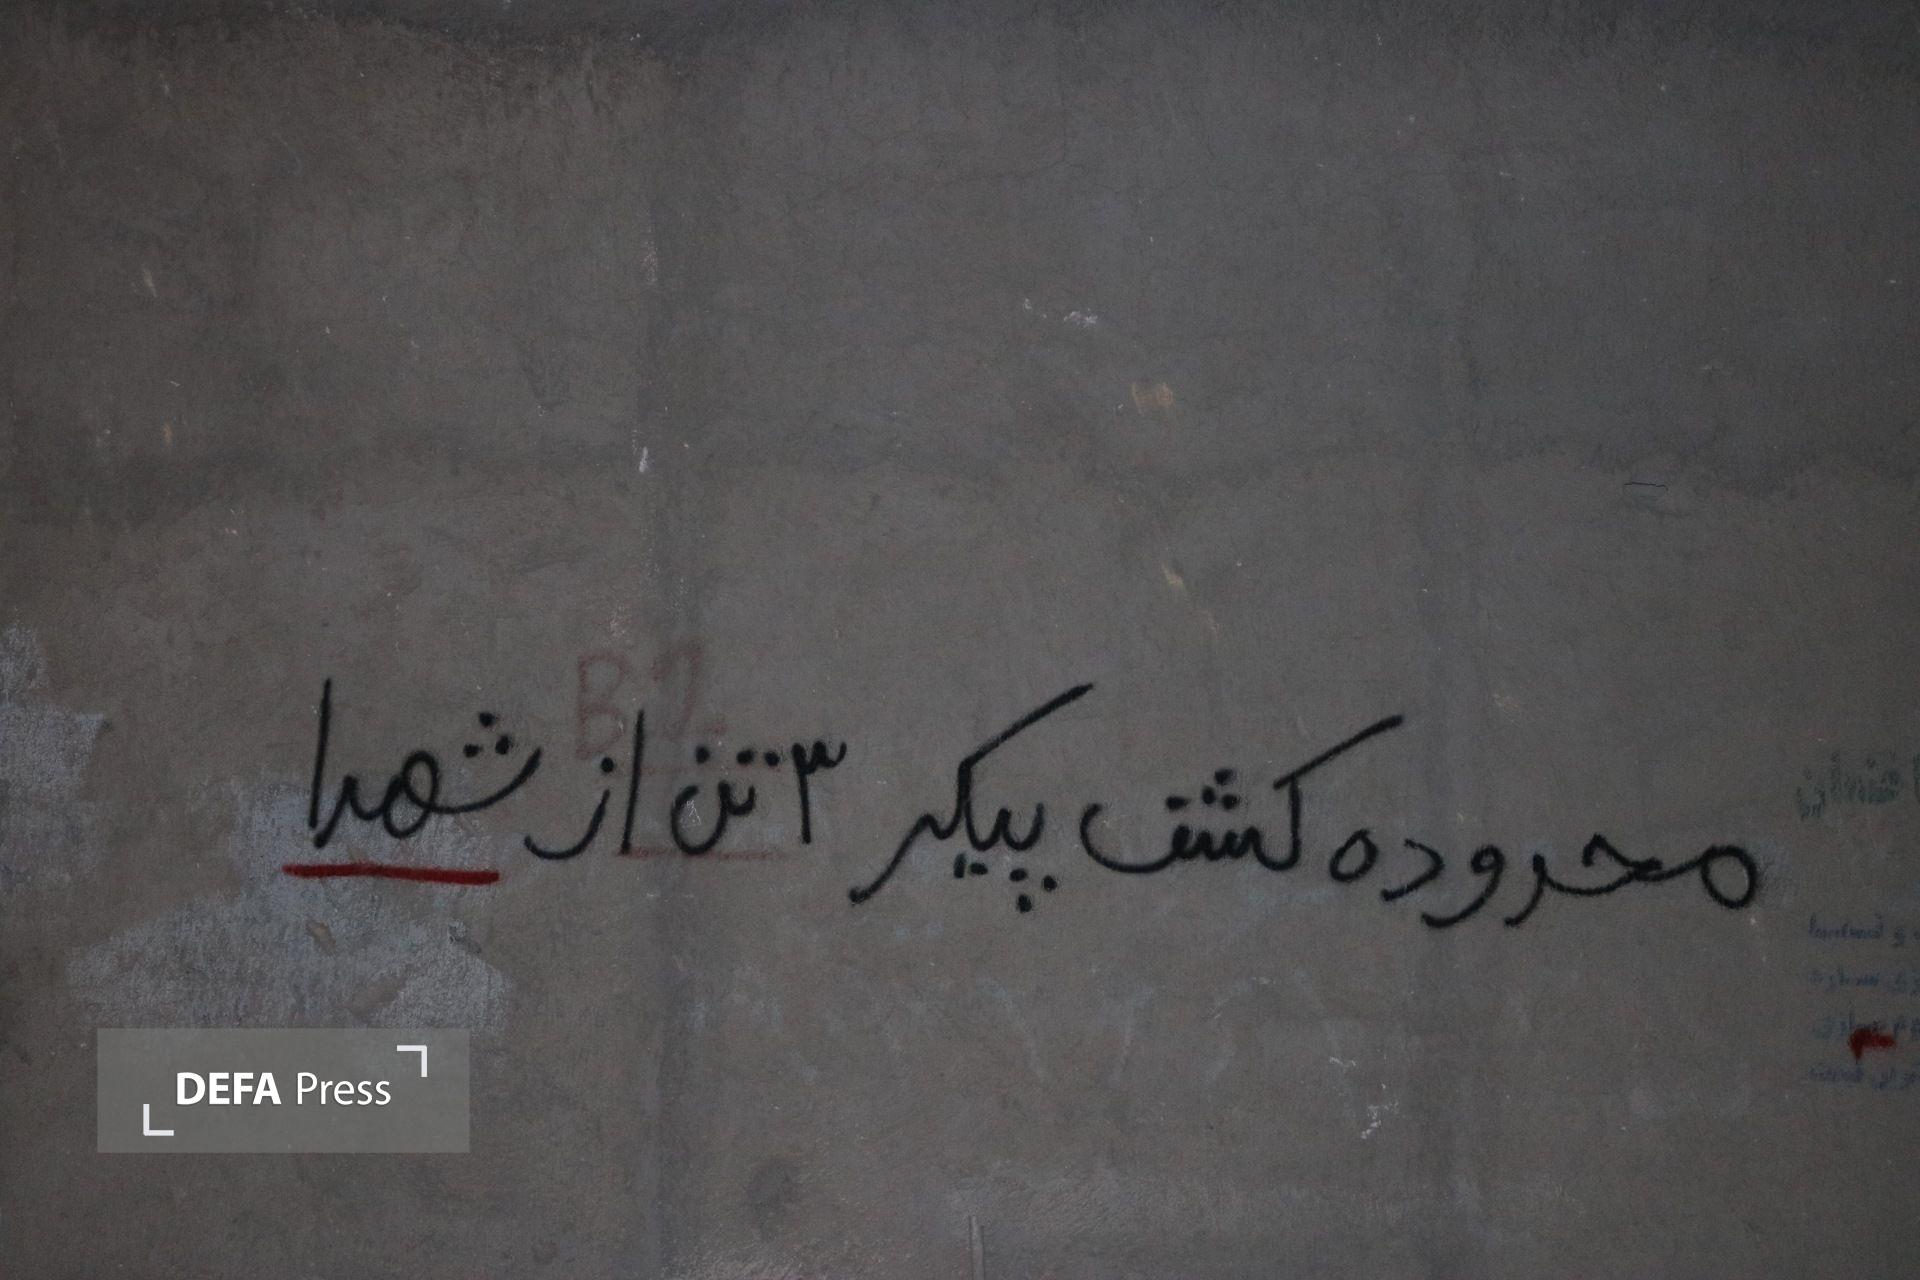 محدوده کشف پیکر ۳ تن از شهدا
DEFA Press